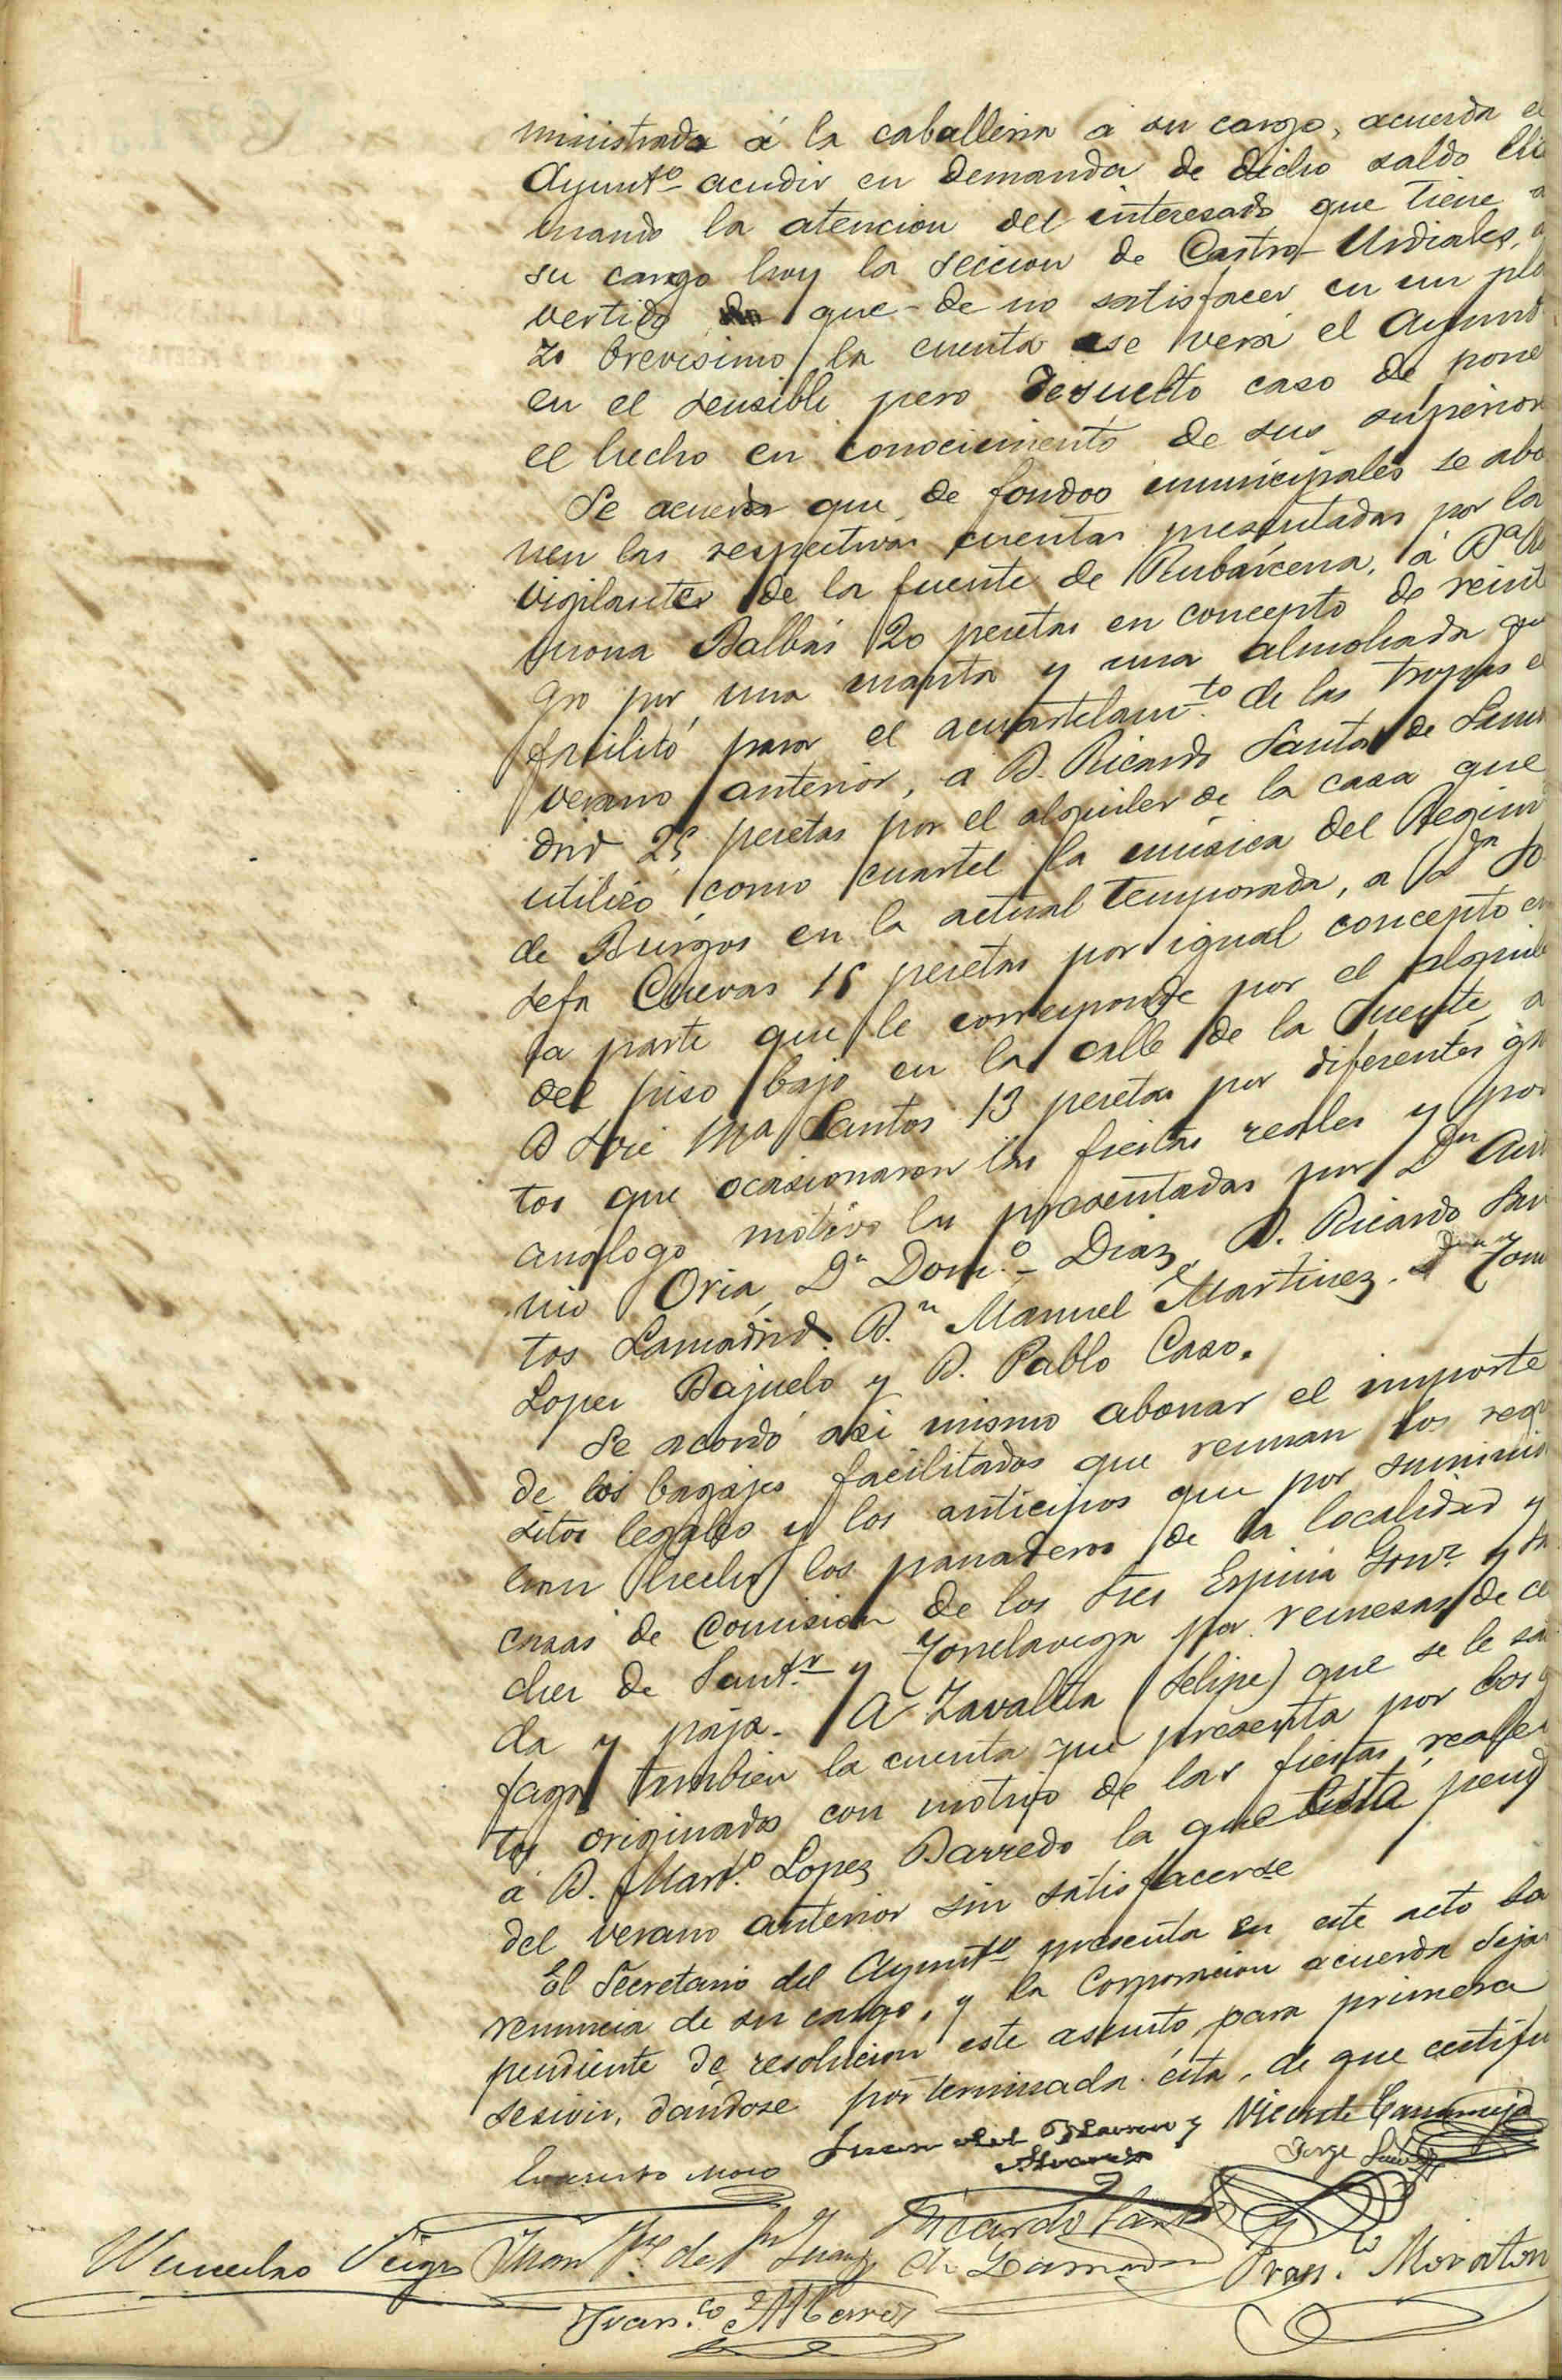 ministrada á la caballeria a su cargo, acuerda el
Ayuntº acudir en demanda de dicho saldo
la atencion del interesado que tiene a
su cargo hoy la seccion de Castro-Urdiales, a
vertido que de no satisfacer en un pla
zo brevisimo la cuenta se verá el Ayunt
en el sensible pero resuelto caso de pone
el hecho en conocimiento de sus superior
Se acuerda que de fondos municipales se abo
nen las respectivas cuentas presentadas por la
vigilantes de la fuente de Rubárcena, á Dª
mona Balbás 20 pesetas en concepto de reint
gro por una manta y una almohada qu
facilitó para el acuartelamto de las tropas e
verano anterior, a D. Ricardo Santos de Lama
drid 25 pesetas por el alquiler de la casa que
utilizó como cuartel la música del Regim
de Burgos en la actual temporada, a Dn Jo
sefa Cuevas 15 pesetas por igual concepto en
la parte que le corresponde por el alquile
del piso bajo en la calle de la Fuente, a
D José Mª Santos 13 pesetas por diferentes gas
tos que ocasionaron las fiestas reales y por
analogo motivo las presentadas por Dn Anto
nio Oria, Dn Domº Diaz, D. Ricardo San
tos Lamadrid. Dn Manuel Martinez. Tom
Lopez Bajuelo y D. Pablo Caso.
Se acordó asi mismo abonar el importe
de los bagajes facilitados que reunan los requ
sitos legales y los anticipos que por suminis
han hecho los panaderos de la localidad y
casas de Comision de los Sres Espina Gonz y
cher de Santr y Torrelavega por remesas de ce
da y paja. A Zavalla (Felipe) que se le sa
faga tambien la cuenta que presenta por los g
tos originados con motivo de las fiestas reales
á D. Marº Lopez Barredo la que está pend
del verano anterior sin satisfacerse
El Secretario del Ayuntº presenta en este acto la
renuncia de su cargo, y la Corporacion acuerda dejar
pendiente de resolucion este asunto para primera
sesion, dándose por terminada ésta, de que certifi
Juan del
Vicente
Jorge
Ricardo Santos
de Lamadrid
Franco Moraton
Franco